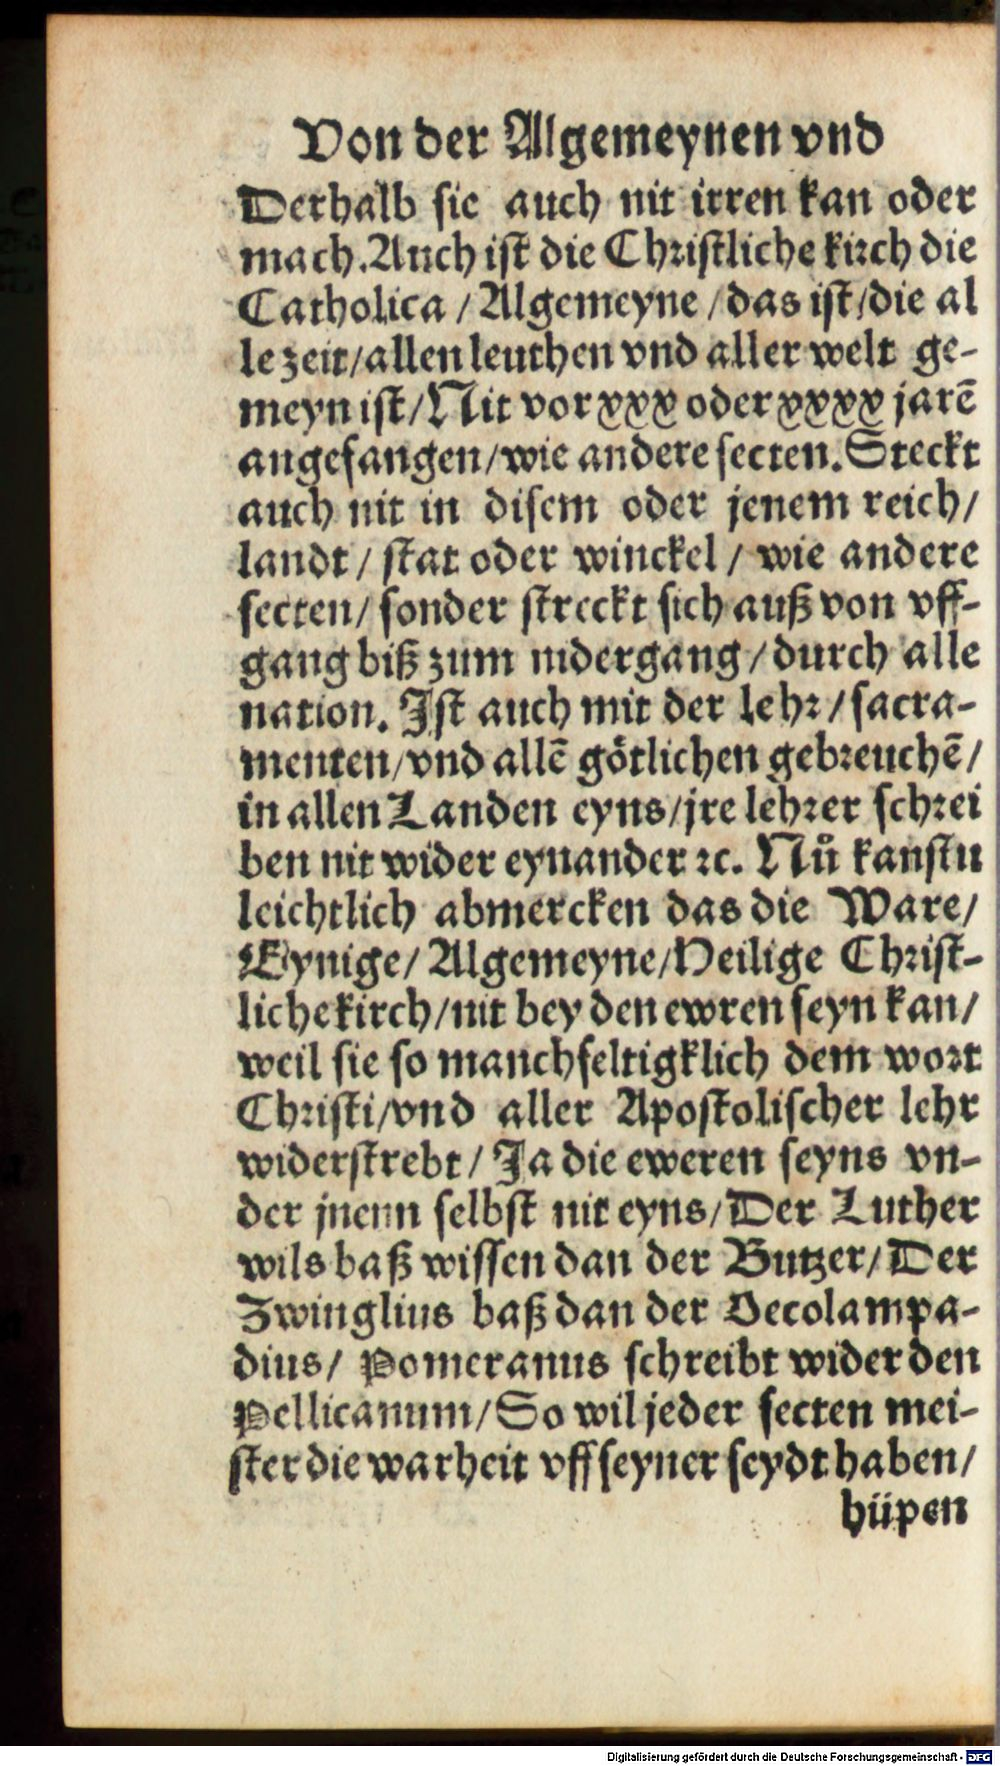 Von der Algemeynen vnd
Derhalb sie auch nit irren kan oder
mach. Auch ist die Christliche kirch die
Catholica / Algemeyne / das ist / die al
le zeit / allen leuthen vnd aller welt ge-
meyn ist / Nit vor xxx oder xxxx jarē
angefangen / wie andere secten. Steckt
auch nit in disem oder jenem reich /
landt / stat oder winckel / wie andere
secten / sonder streckt sich auß von vff-
gang biß zum nidergang / durch alle
nation. Ist auch mit der lehr / sacra-
menten / vnd allē götlichen gebreuchē /
in allen Landen eyns / jre lehrer schrei
ben nit wider eynander ꝛc. Nů kanstu
leichtlich abmercken das die Ware /
Eynige / Algemeyne / Heilige Christ-
liche kirch / nit bey den ewren seyn kan /
weil sie so manchfeltigklich dem wort
Christi / vnd aller Apostolischer lehr
widerstrebt / Ja die eweren seyns vn-
der jnenn selbst nit eyns / Der Luther
wils baß wissen dan der Butzer / Der
Zwinglius baß dan der Oecolampa-
dius / Pomeranus schreibt wider den
Pellicanum / So wil jeder secten mei-
ster die warheit vff seyner seydt haben /
hüpen
Digitalisierung gefördert durch die Deutsche Forschungsgemeinschaft - DFG